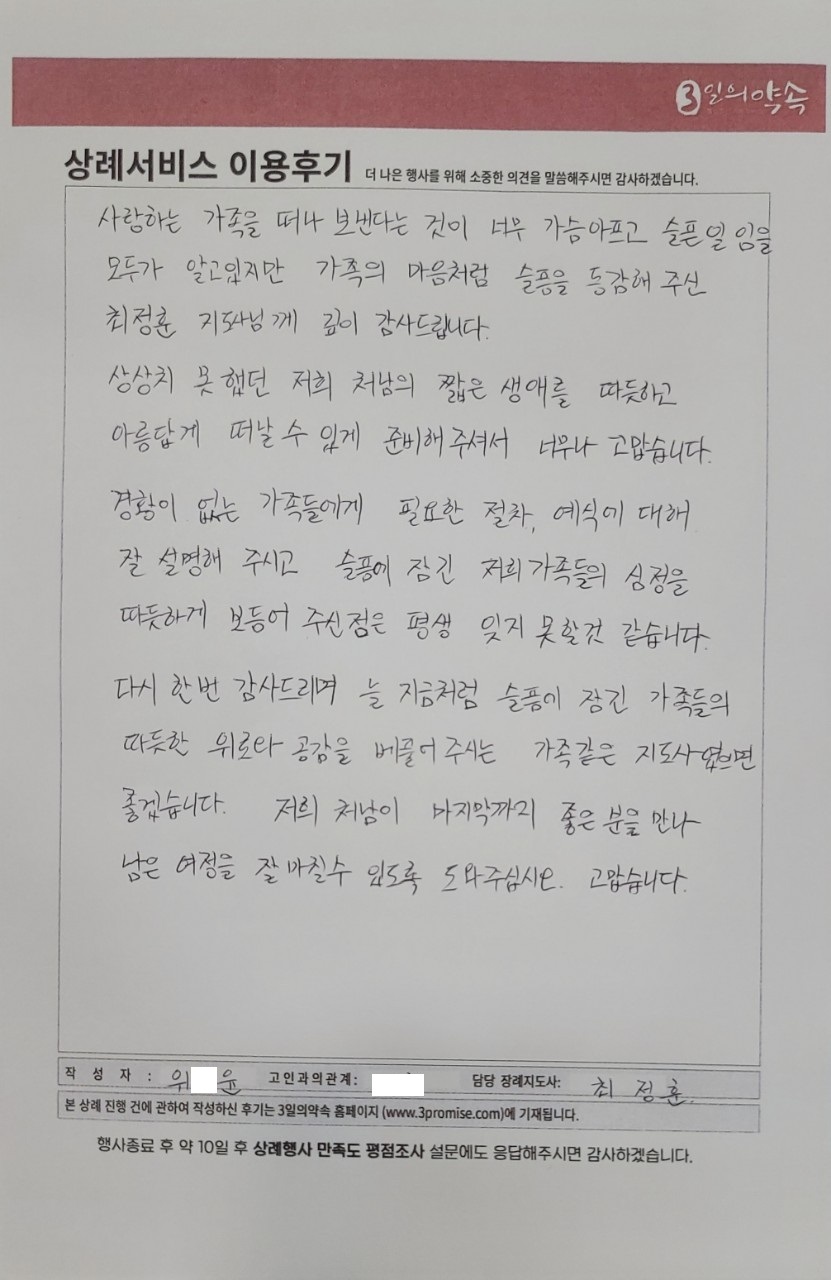 3일의약속
상례서비스 이용후기 더 나은 행사를 위해 소중한 의견을 말씀해주시면 감사하겠습니다.
사랑하는 가족을 떠나 보낸다는 것이 너무 가슴아프고 슬픈일 임을
모두가 알고있지만 가족의 마음처럼 슬픔을 등감해 주신
최정훈 지도사님께 깊이 감사드립니다.
상상치 못했던 저희 처남의 짧은 생애를 따듯하고
아름답게 떠날 수 있게 준비해주셔서 너무나 고맙습니다.
경황이 없는 가족들에게 필요한 절차, 예식에 대해
잘 설명해 주시고 슬픔에 잠긴 저희가족들의 심정을
따듯하게 보듬어 주신점은 평생 잊지 못할것 같습니다.
다시 한번 감사드리며 늘 지금처럼 슬픔에 잠긴 가족들의
따듯한 위로와 공감을 베풀어 주시는 가족같은 지도사였으면
좋겠습니다. 저희 처남이 마지막까지 좋은 분을 만나
남은 여정을 잘 마칠수 있도록 도와주십시오. 고맙습니다.
작 성 자 : 위 윤 고인과의관계: 담당 장례지도사: 최 정 훈.
본 상례 진행 건에 관하여 작성하신 후기는 3일의약속 홈페이지 (www.3promise.com)에 기재됩니다.
행사종료 후 약 10일 후 상례행사 만족도 평점조사 설문에도 응답해주시면 감사하겠습니다.